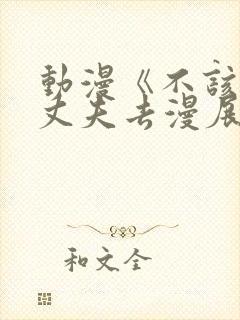 動漫《不該
丈夫去漫展
和文全